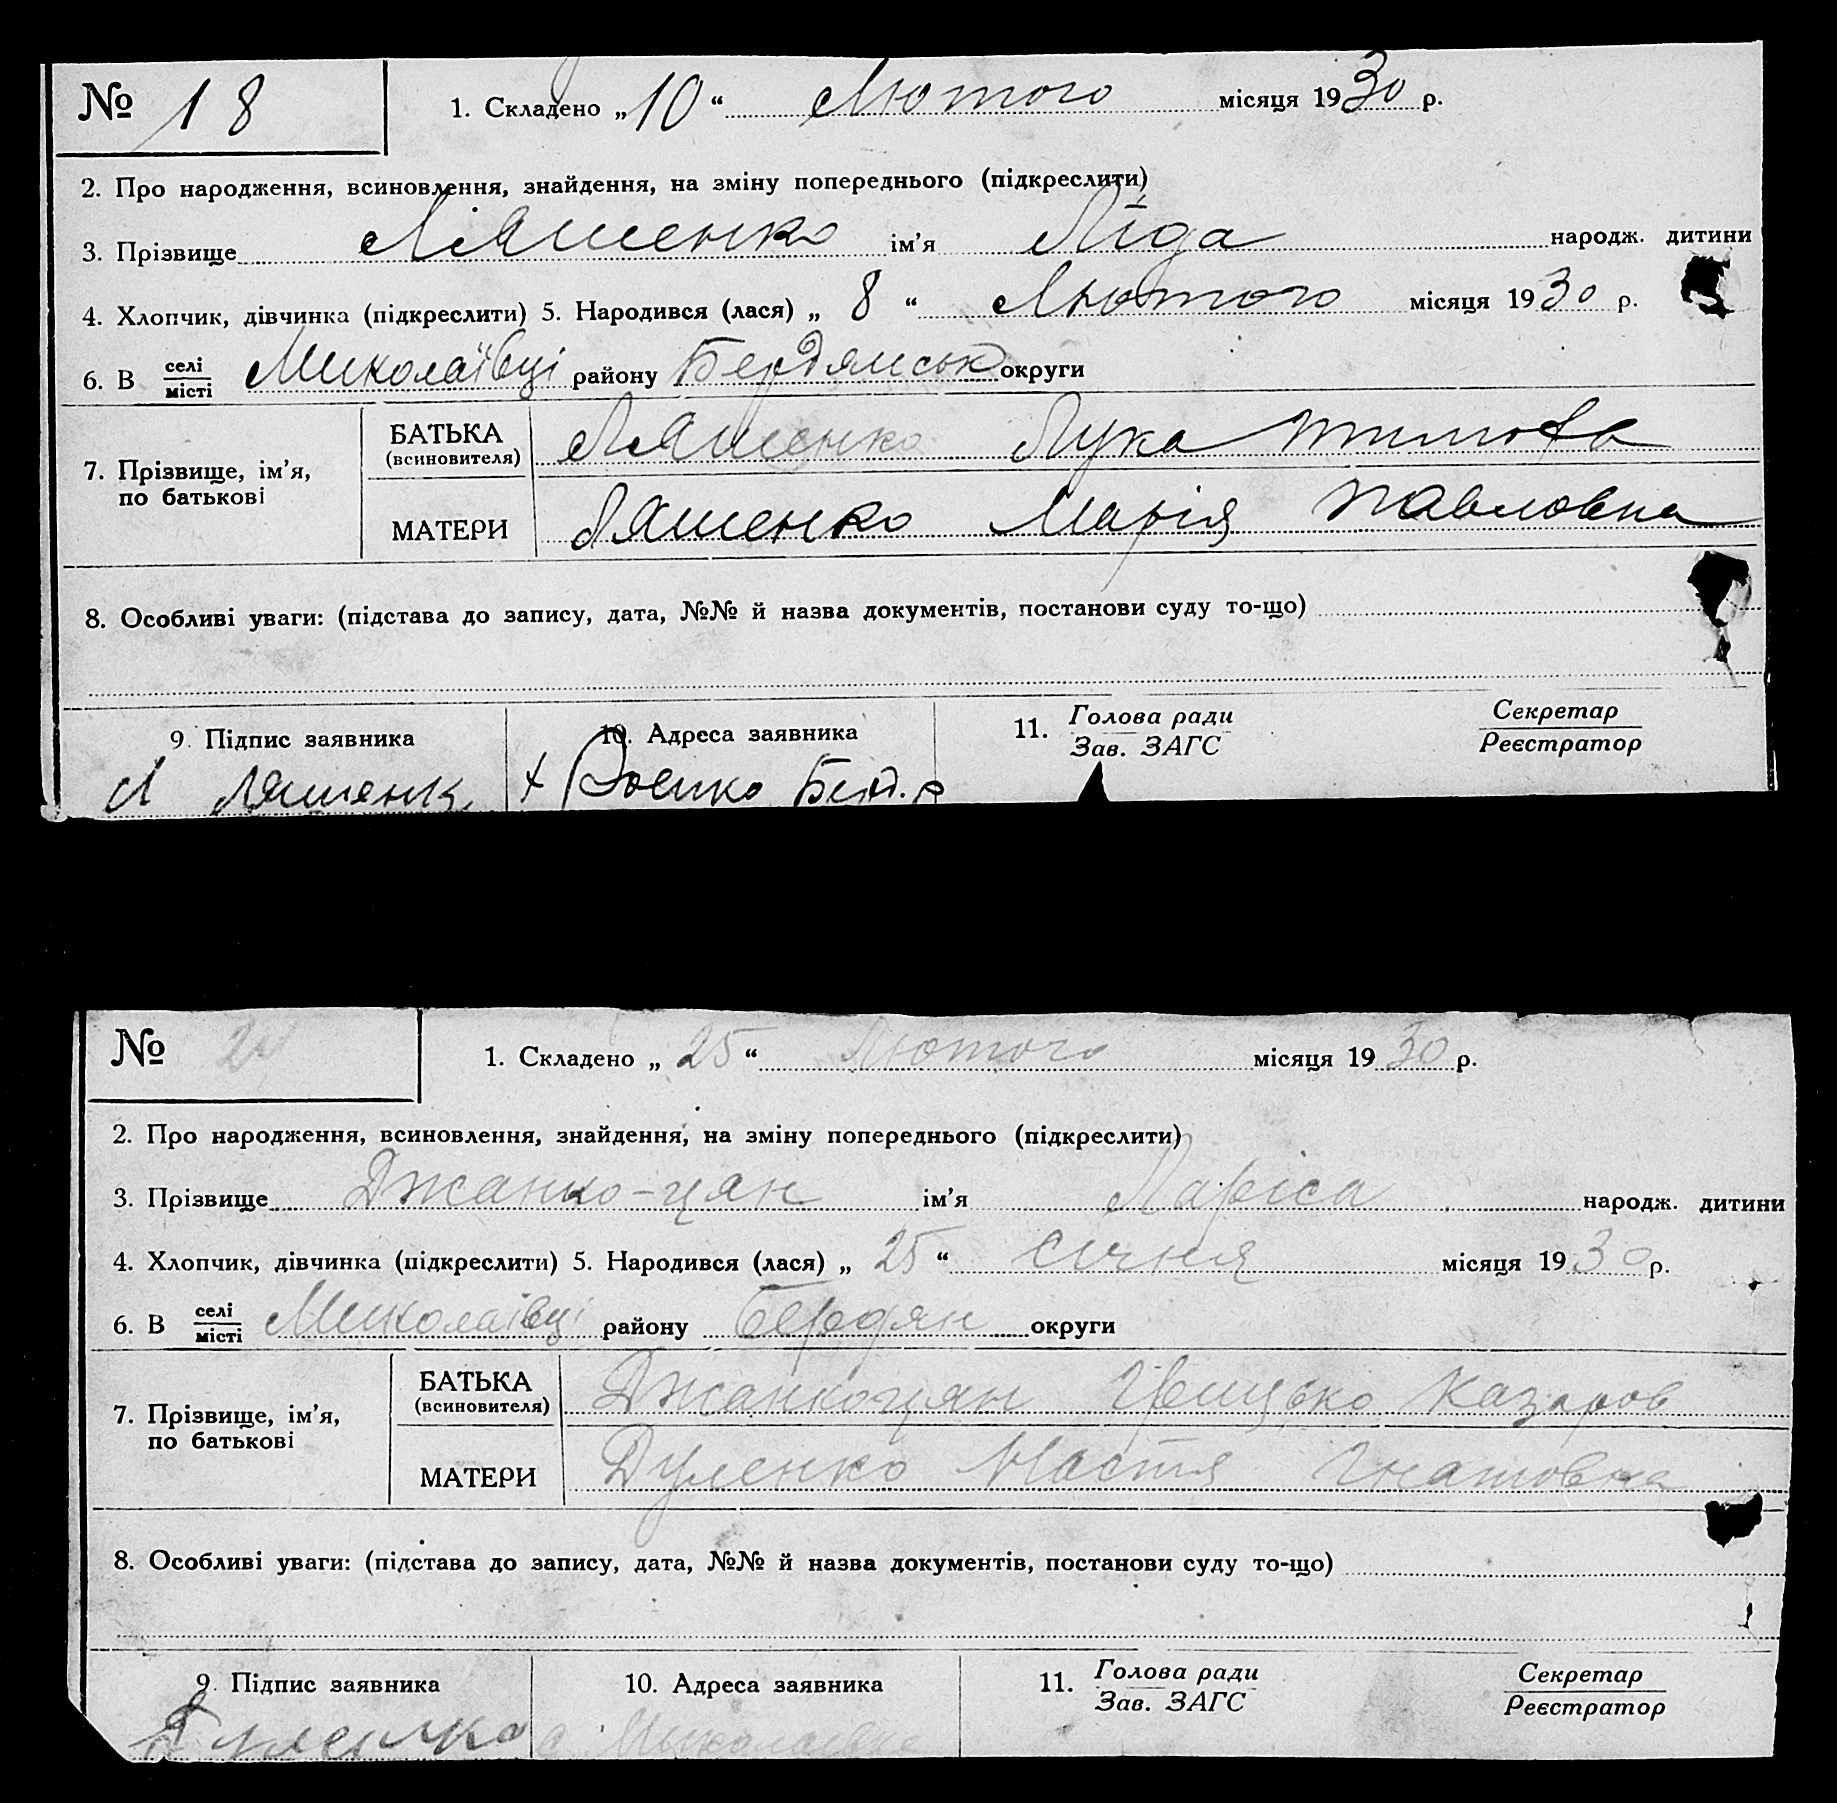 № 18 1. Складено „10“ Лютого місяця 1930 р.
2. Про народження, всиновлення, знайдення, на зміну попереднього (підкреслити)
3. Прізвище Ляшенко ім’я Ліда народж. дитини
4. Хлопчик, дівчинка (підкреслити) 5. Народився (лася) „8“ Лютого місяця 1930 р.
6. В селі місті Миколаївці району Бердянськ округи
7. Прізвище, ім’я, по батькові
БАТЬКА (всиновителя) Ляшенко Лука Тимофв
МАТЕРИ Ляшенко Марія Павловна
8. Особливі уваги: (підстава до запису, дата, №№ й назва документів, постанови суду то-що)
9. Підпис заявника 10. Адреса заявника 11. Голова ради Зав. ЗАГС Секретар Реєстратор
Л Ляшенк
№ 24 1. Складено „25“ Лютого місяця 1930 р.
2. Про народження, всиновлення, знайдення, на зміну попереднього (підкреслити)
3. Прізвище Джанко-цян ім’я Ларіса народж. дитини
4. Хлопчик, дівчинка (підкреслити) 5. Народився (лася) „25“ січня місяця 1930 р.
6. В селі місті Миколаівці району Бердян округи
7. Прізвище, ім’я, по батькові
БАТЬКА (всиновителя) Джанкоцян Грицько Казаров
МАТЕРИ Дуленко Настя Гнатовна
8. Особливі уваги: (підстава до запису, дата, №№ й назва документів, постанови суду то-що)
9. Підпис заявника 10. Адреса заявника 11. Голова ради Зав. ЗАГС Секретар Реєстратор
Дуленко с Миколаевка